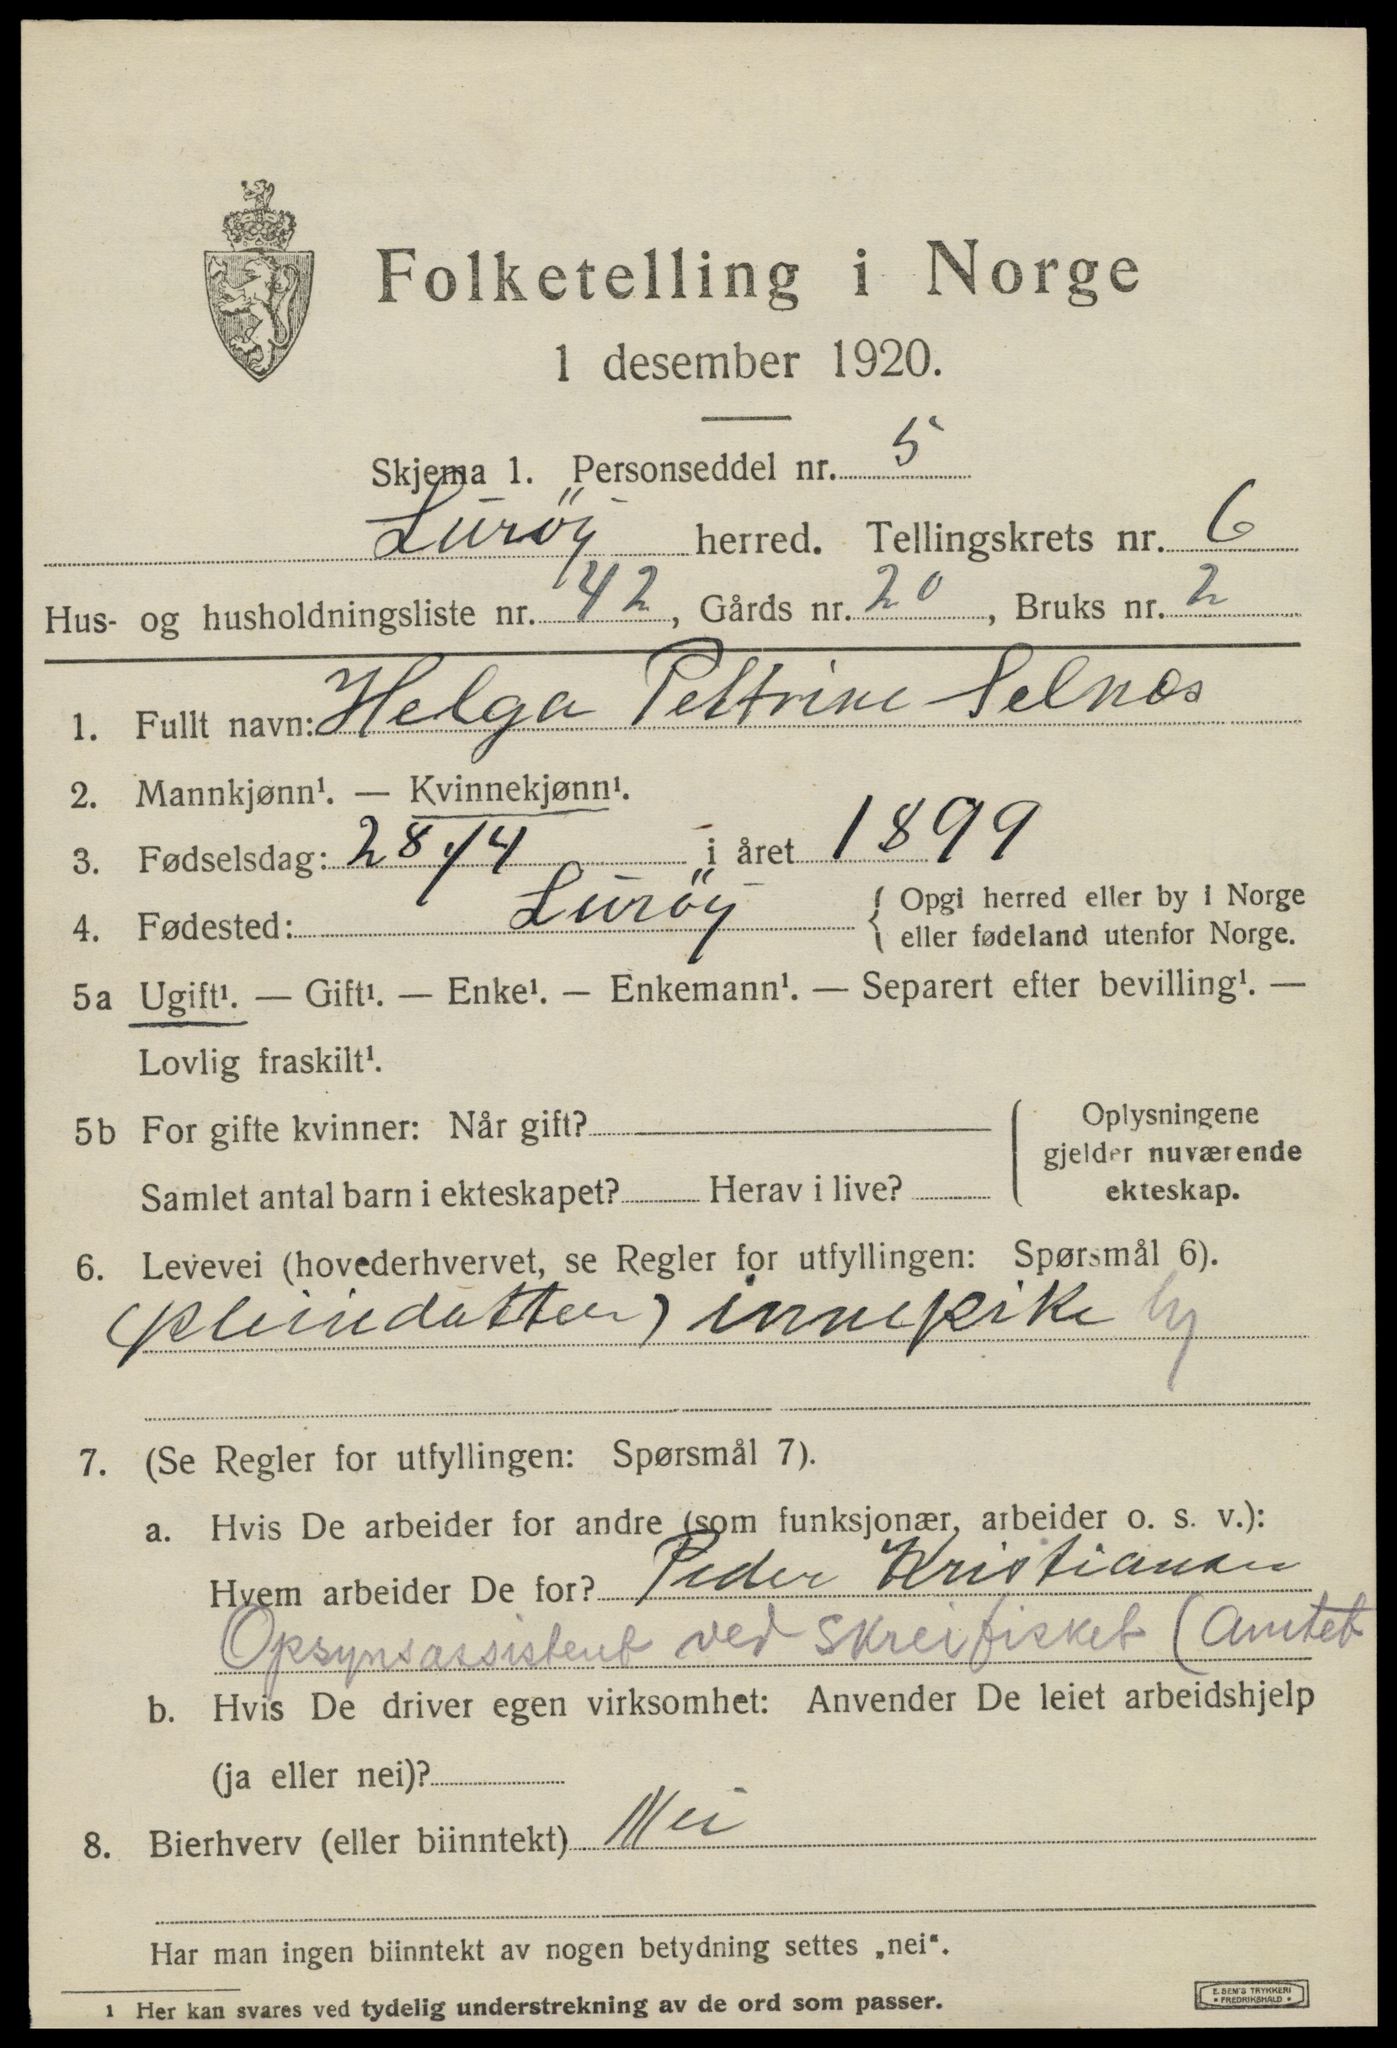 Folketelling i Norge
1 desember 1920.
Skjema 1. Personseddel nr. 5
Lurøy herred. Tellingskrets nr. 6
Hus- og husholdningsliste nr. 42, Gårds nr. 20, Bruks nr. 2
1. Fullt navn: Helga Pettrine Selnes
2. Mannkjønn¹. — Kvinnekjønn¹.
3. Fødselsdag: 28/4 i året 1899
4. Fødested: Lurøy { Opgi herred eller by i Norge
eller fødeland utenfor Norge.
5a Ugift¹. — Gift¹. — Enke¹. — Enkemann¹. — Separert efter bevilling¹. —
Lovlig fraskilt¹.
5b For gifte kvinner: Når gift?
Samlet antal barn i ekteskapet? Herav i live?
Oplysningene
gjelder nuværende
ekteskap.
6. Levevei (hovederhvervet, se Regler for utfyllingen: Spørsmål 6).
(pleiedatter) innepike hj
7. (Se Regler for utfyllingen: Spørsmål 7).
a. Hvis De arbeider for andre (som funksjonær, arbeider o. s. v.):
Hvem arbeider De for? Peder Kristiansen
Opsynsassistent ved skreifisket (Amtet
b. Hvis De driver egen virksomhet: Anvender De leiet arbeidshjelp
(ja eller nei)?
8. Bierhverv (eller biinntekt) Nei
Har man ingen biinntekt av nogen betydning settes „nei“.
1 Her kan svares ved tydelig understrekning av de ord som passer.
E. SEM'S TRYKKERI
• FREDRIKSHALD •